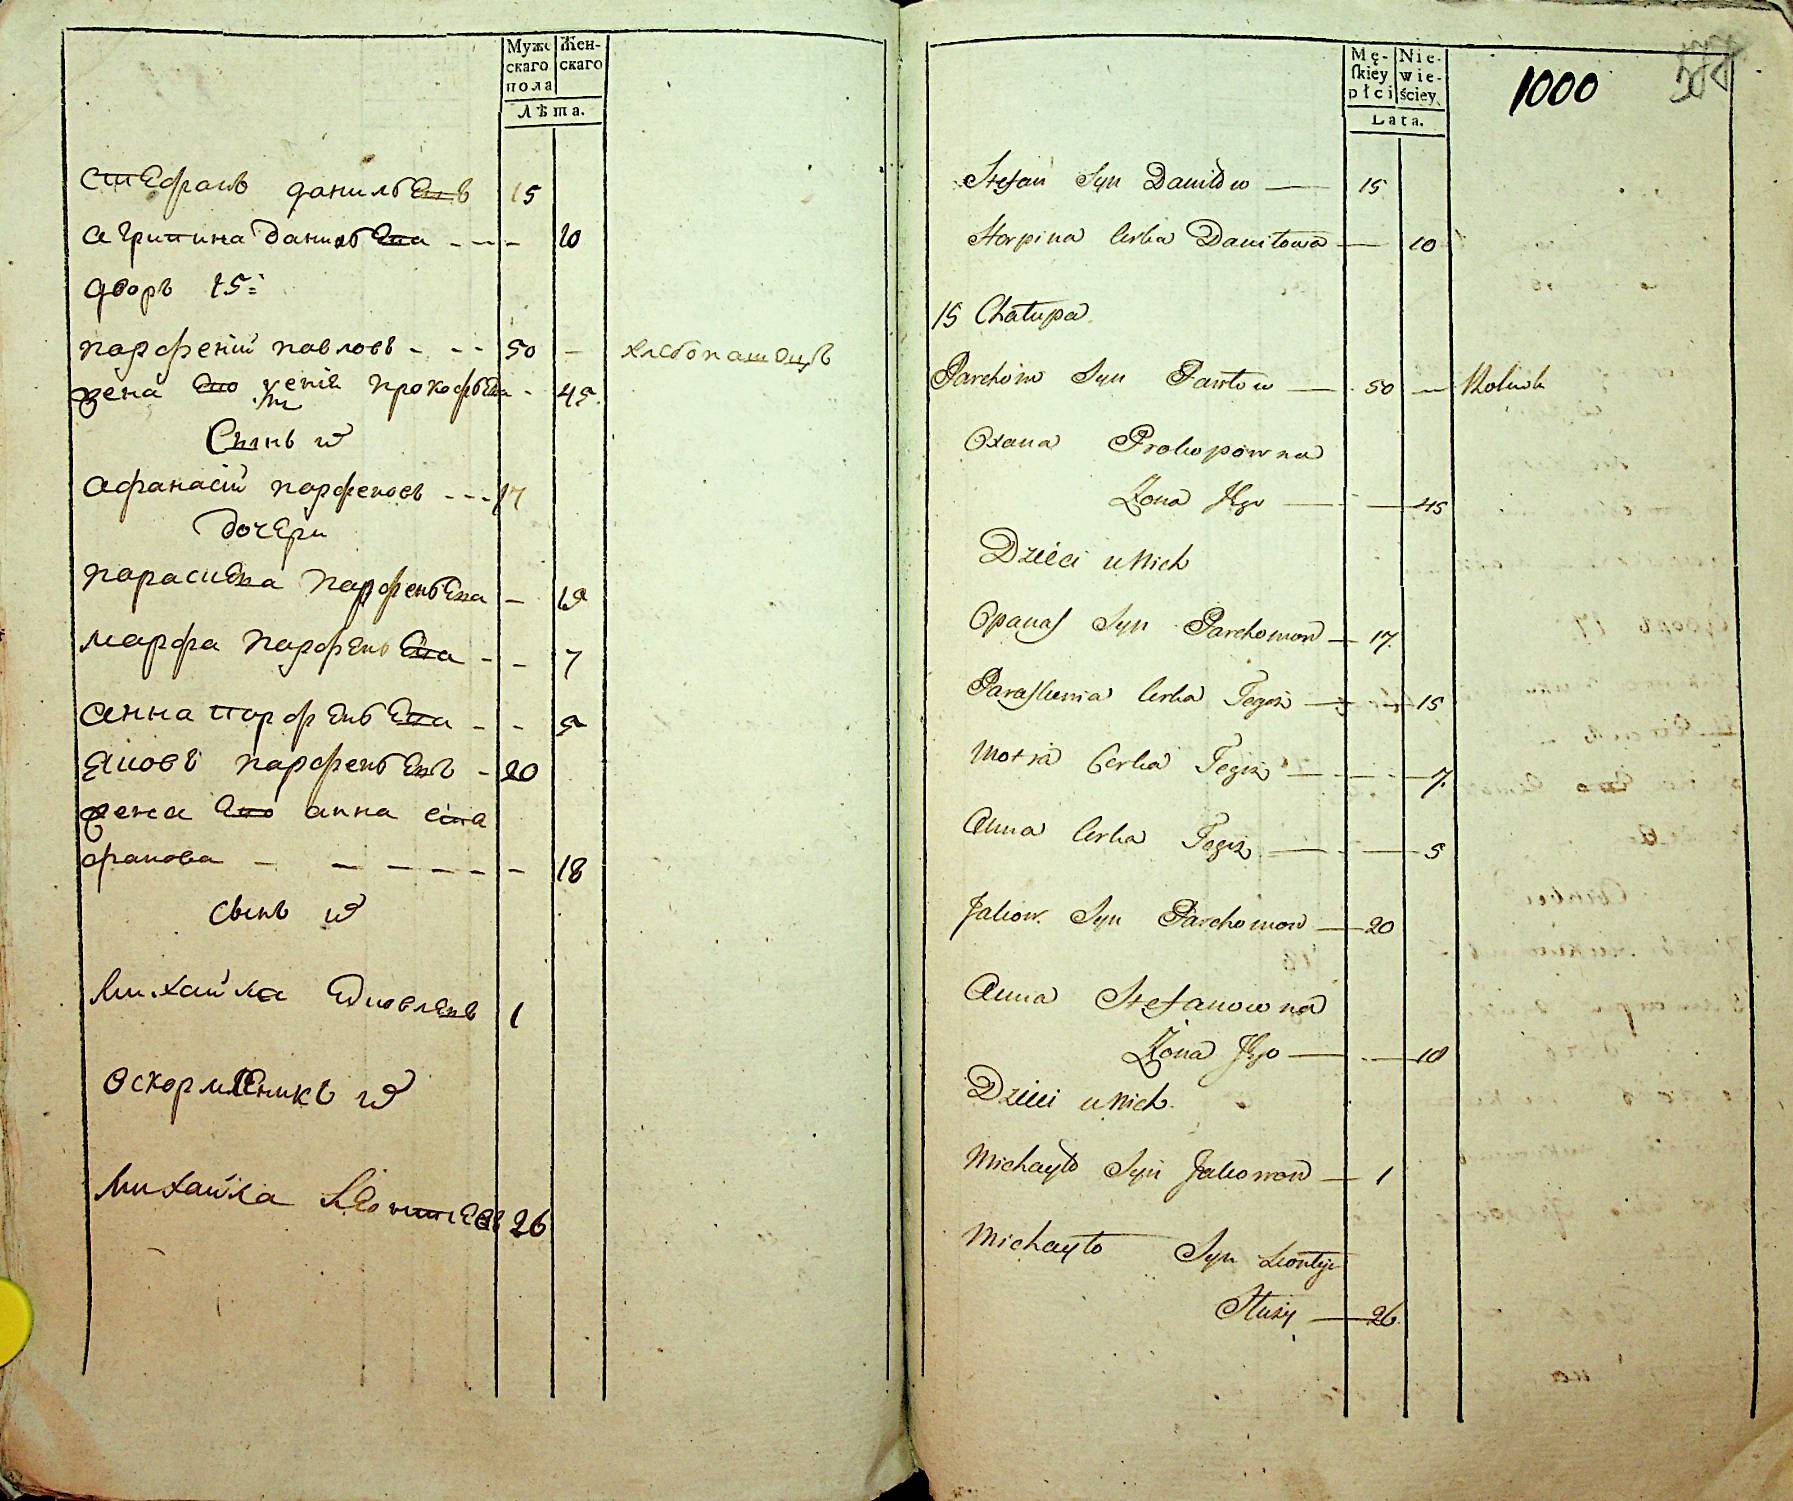 Мужс
скаго
пола
Жен-
скаго
Лѣта.
Стефанъ Данильевъ 15
Агрипина Данильева - - - 10
дворъ 15:
Парфеній Павловъ - - - 50 — хлебопашецъ
жена его Ксенія Прокофьева - 45
Сынъ
Афанасій Парфеновъ - - - 17
дочери
Параскева Парфеньева — 15
Марфа Парфеньева - - 7
Анна Парфеньева - - 5
Яковъ Парфеньевъ - 20
жена его Анна Сте
фанова - - - - - - 18
Сынъ
Михайла Яковлевъ 1
Михайла Леонтіевъ 26
Mę-
skiey
płci
Nie-
wie-
ściey
Lata.
1000
Stefan Syn Daniłow — 15
Horpina Corka Daniłowa — 10
15 Chałupa
Parchom Syn Pawłow — 50 — Rolnik
Oxana Prokopowna
Zona Jego — 45
Dzieci u Nich
Opanas Syn Parchomow — 17
Paraskewia Corka Tegoż — 15
Motra Corka Tegoż — 7
Anna Corka Tegoż — 5
Jakow Syn Parchomow — 20
Anna Stefanowna
Zona Jego — 18
Dzieci u Nich
Michayło Syn Jakowow — 1
Michayło Syn Leontyi
Służy — 26